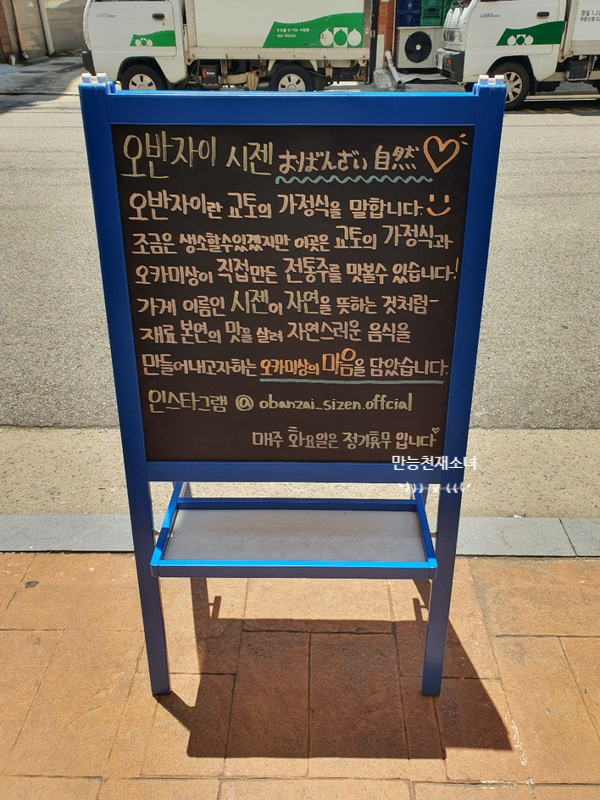 오반자이 시젠 おばんざい 自然
오반자이란 교토의 가정식을 말합니다.
조금은 생소할수있겠지만 이곳은 교토의 가정식과
오카미상이 직접만든 전통주를 맛볼수 있습니다!
가게 이름인 시젠이 자연을 뜻하는 것처럼~
재료 본연의 맛을 살려 자연스러운 음식을
만들어내고자하는 오카미상의 마음을 담았습니다.
인스타그램 @ obanzai_sizen.offcial
매주 화요일은 정기휴무 입니다
만능천재소녀